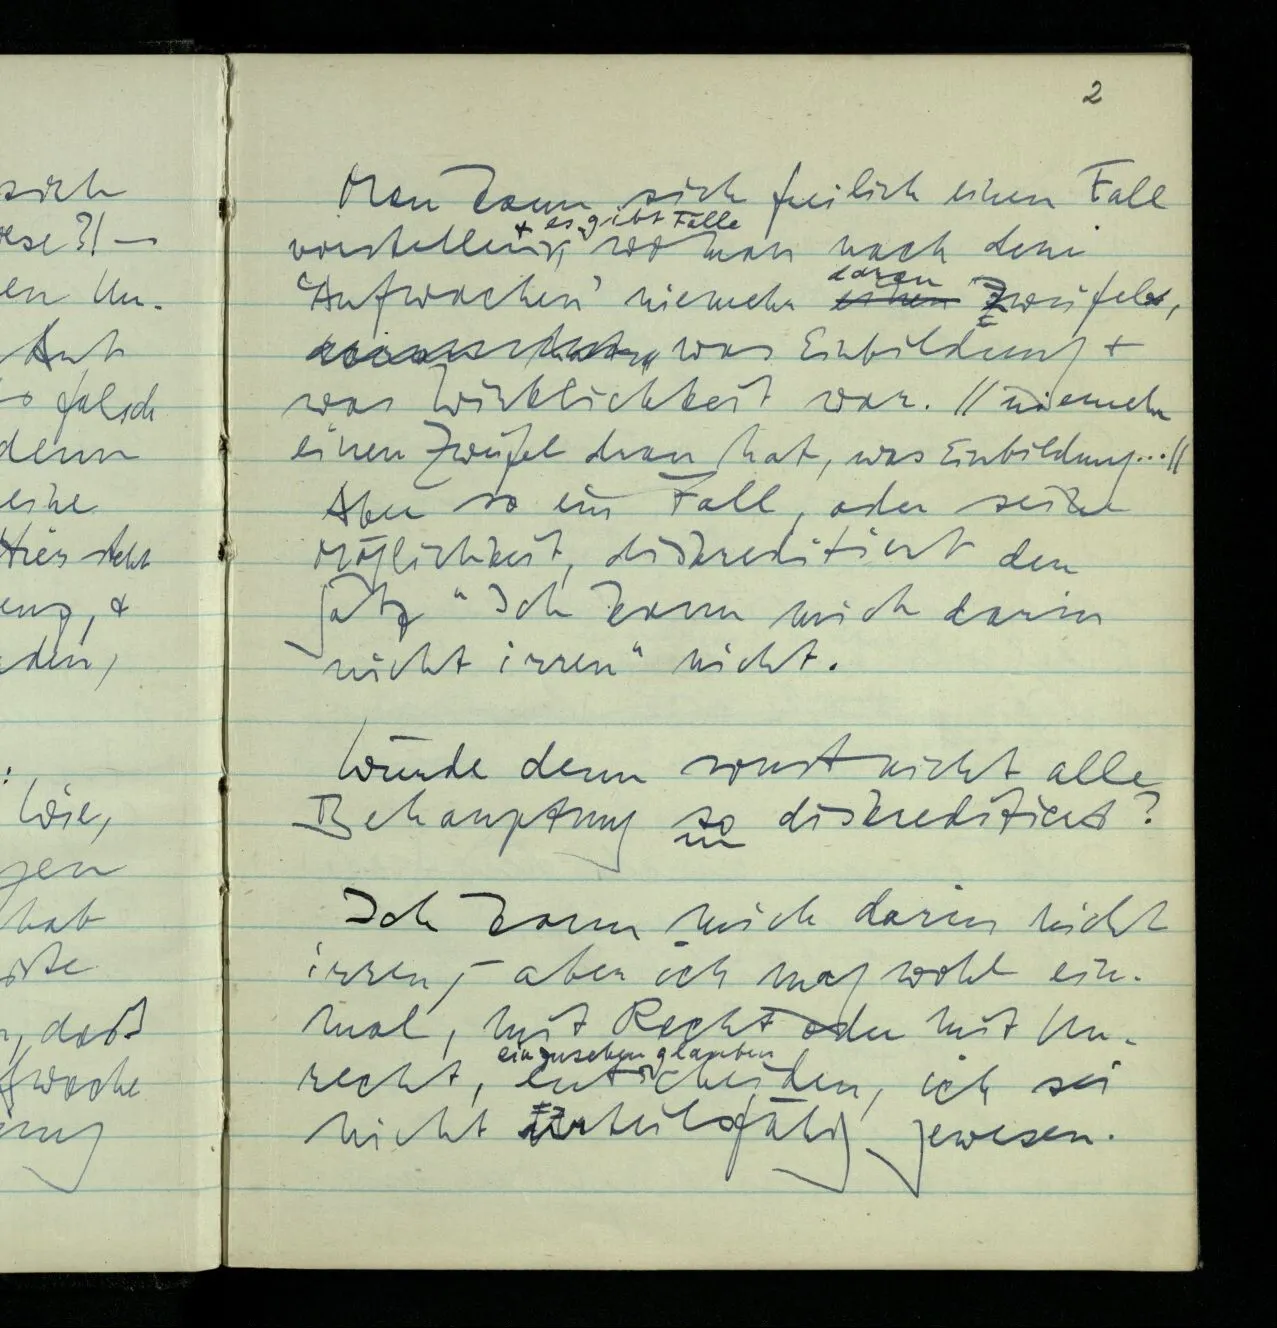 sich
ese?! —
en Un-
Ant
so falsch
denn
eine
Hier steht
, &
den,
:
Löse,
gen
hat
ste
, daß
fwache
ung
2
Man kann sich freilich einen Fall
+ es gibt Fälle
vorstellen, wo man nach dem
daran
'Aufwachen' niemehr einen Zweifelt,
was Einbildung +
was Wirklichkeit war. // niemehr
einen Zweifel dran hat, was Einbildung...//
Aber so ein Fall, oder seine
Möglichkeit, diskreditiert den
Satz "Ich kann mich darin
nicht irren" nicht.
Würde denn sonst nicht alle
Behauptung so diskreditiert?
Ich kann mich darin nicht
irren, – aber ich mag wohl ein-
mal, mit Recht oder mit Un-
einzusehen glauben
recht, entscheiden, ich sei
nicht Urteilsfähig gewesen.